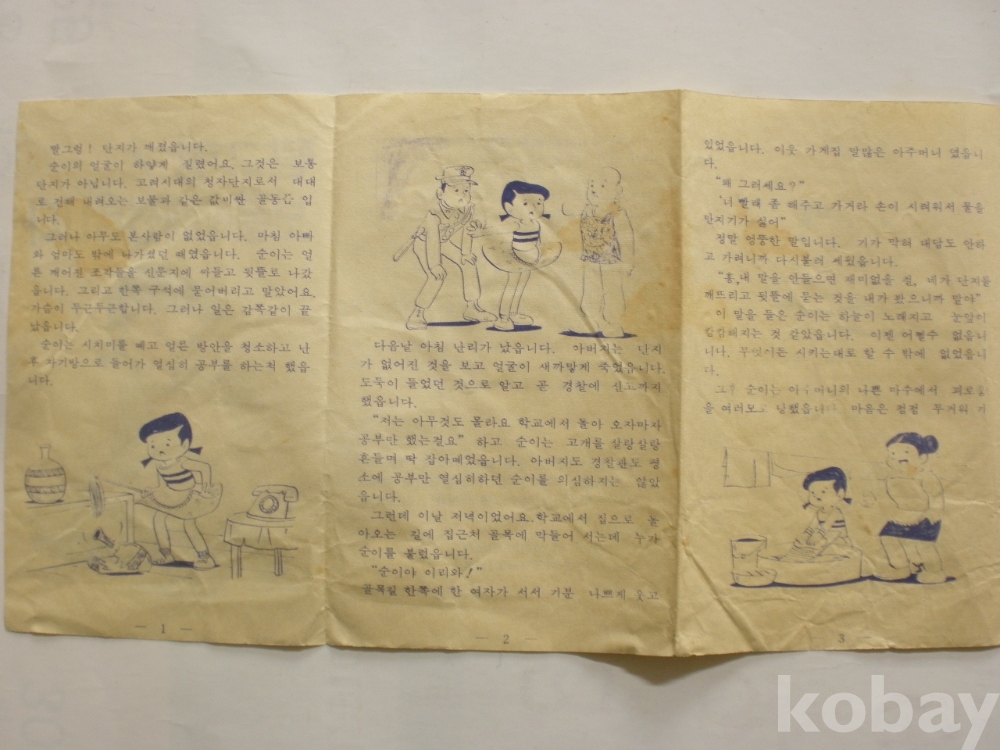 떨그렁! 단지가 깨졌읍니다.
순이의 얼굴이 하얗게 질렸어요. 그것은 보통
단지가 아닙니다. 고려시대의 청자단지로서 대대
로 전해 내려오는 보물과 같은 값비싼 골동품 입
니다.
그러나 아무도 본사람이 없었읍니다. 마침 아빠
와 엄마도 밖에 나가셨던 때였읍니다. 순이는 얼
른 깨어진 조각들을 신문지에 싸들고 뒷뜰로 나갔
읍니다. 그리고 한쪽 구석에 묻어버리고 말았어요.
가슴이 두근두근합니다. 그러나 일은 감쪽같이 끝
났읍니다.
순이는 시치미를 떼고 얼른 방안을 청소하고 난
후 자기방으로 들어가 열심히 공부를 하는척 했읍
니다.
— 1 —
다음날 아침 난리가 났읍니다. 아버지는 단지
가 없어진 것을 보고 얼굴이 새까맣게 죽었읍니다.
도둑이 들었던 것으로 알고 곧 경찰에 신고까지
했읍니다.
"저는 아무것도 몰라요 학교에서 돌아 오자마자
공부만 했는걸요" 하고 순이는 고개를 살랑살랑
흔들며 딱 잡아떼었읍니다. 아버지도 경찰관도 평
소에 공부만 열심히하던 순이를 의심하지는 않았
읍니다.
그런데 이날 저녁이었어요. 학교에서 집으로 돌
아오는 길에 집근처 골목에 막들어 서는데 누가
순이를 불렀읍니다.
"순이야 이리와!"
골목길 한쪽에 한 여자가 서서 기분 나쁘게 웃고
— 2 —
있었읍니다. 이웃 가게집 말많은 아주머니 였읍니
다.
"왜 그러세요?"
"너 빨래 좀 해주고 가거라 손이 시려워서 물을
만지기가 싫어"
정말 엉뚱한 말입니다. 기가 막혀 대답도 안하
고 가려니까 다시불러 세웠읍니다.
"흥, 내 말을 안들으면 재미없을 걸. 네가 단지를
깨뜨리고 뒷뜰에 묻는 것을 내가 봤으니까 말야"
이 말을 들은 순이는 하늘이 노래지고 눈앞이
캄캄해지는 것 같았읍니다. 이젠 어쩔수 없읍니
니다. 무엇이든 시키는대로 할 수 밖에 없었읍니
다.
그후 순이는 아주머니의 나쁜 마수에서 괴로움
을 여러모로 당했읍니다 마음은 점점 무거워
— 3 —
kobay